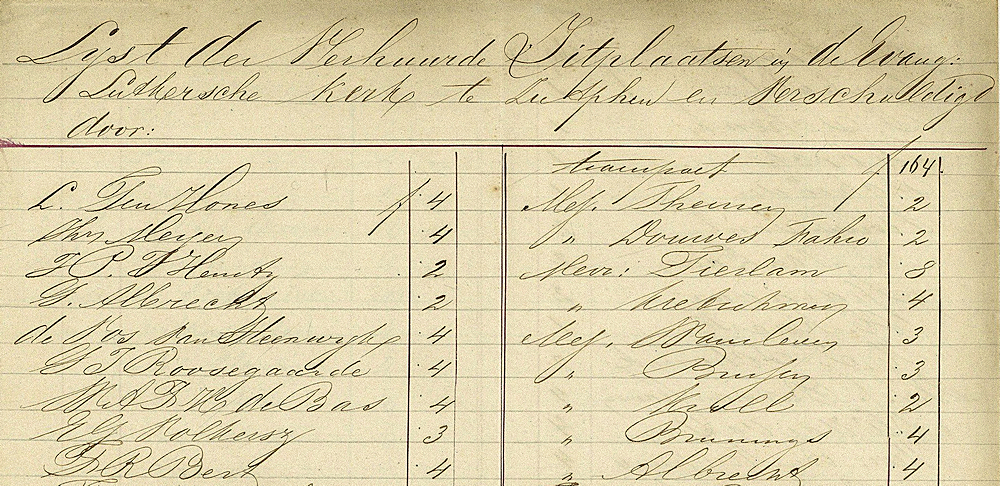 Lyst der Verhuurde Zitplaatsen in de Evang:
Luthersche Kerk te Zutphen en Verschuldigd
door:
L. Ten Hones f 4
Chr Meyer 4
F. P. D'Henity 2
G. Albrecht 2
de Vos van Steenwijk 4
G J Roosegaarde 4
W A F H de Bas 4
E G Kolkersz 3
F R Bert 4
transport f 164
Mej. 2
" Douwes 2
Mevr: Tierlam 8
" 4
Mej. 3
" 3
" Krull 2
" Brunings 4
" Albrecht 4